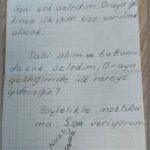 Seni çok özledim. Oraya ge
lince ilk işim size sarılma
olacak.
Tabi abim ve babamı
da çok özledim. Oraya
geldiğimde ilk nereye
gideceğiz?
Böylelikle mektubu
ma son veriyorum